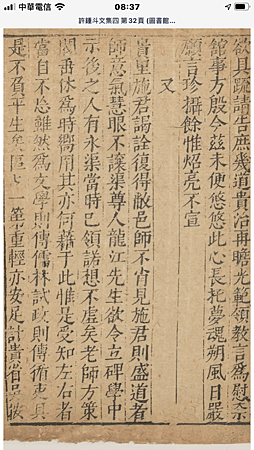 中華電信 08:37
許鍾斗文集四 第 32 頁 (圖書館...
欲具疏請告庶幾道貴治再瞻光範領教言為慰柰
館事方殷今茲未便悠悠此心長托夢魂朔風日嚴
願言珍攝餘惟炤亮不宣
又
貴里施君謁詮復得敝邑師不肖見施君則盛道老
師意氣慧眼不讓渠尊人龍江先生欲令立碑學中
示後之人有永渠當時已領諾想不虛矣老師方策
休為時嚮用其亦何藉于此惟是受知左右者
當自不忘雖然為文學則傳儒林試政則傳循吏具
是不負平生矣區區一第重輕亦安足計貴省